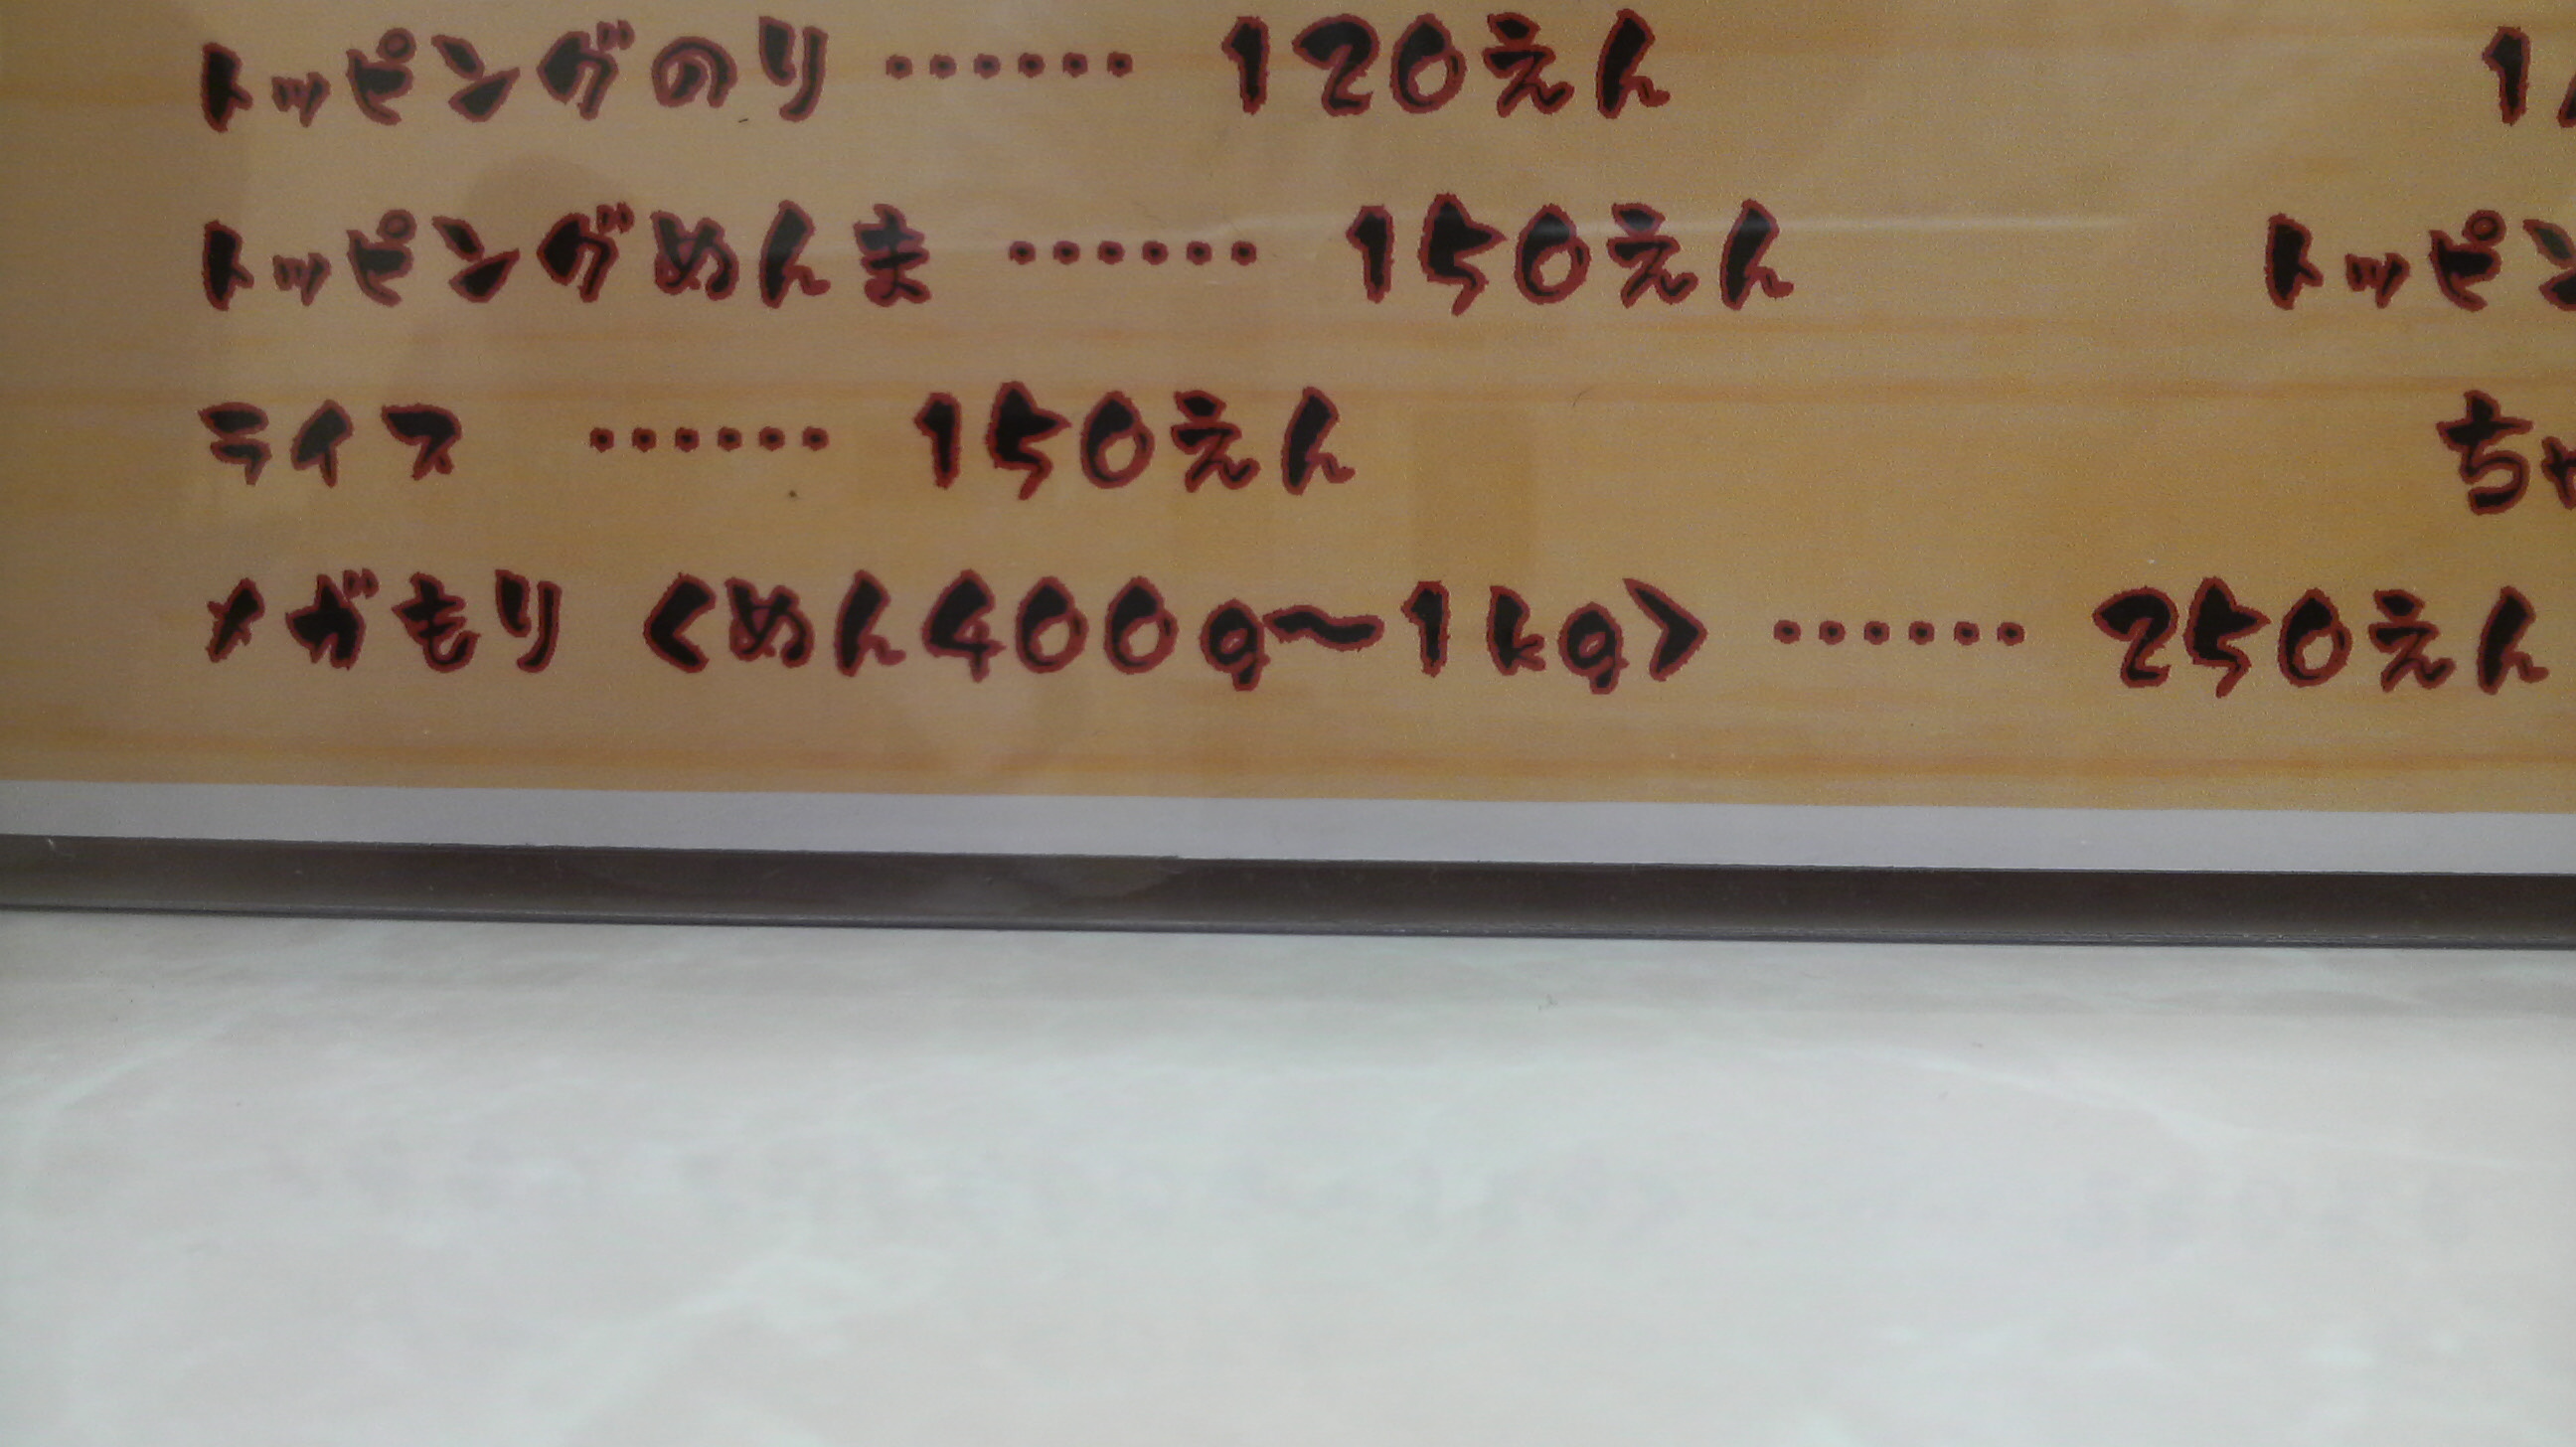 トッピングのり ‥‥‥ 120えん
トッピングめんま ‥‥‥ 150えん
トッピン
ライス ‥‥‥ 150えん
ちゃ
メガもり <めん400g〜1kg> ‥‥‥ 250えん